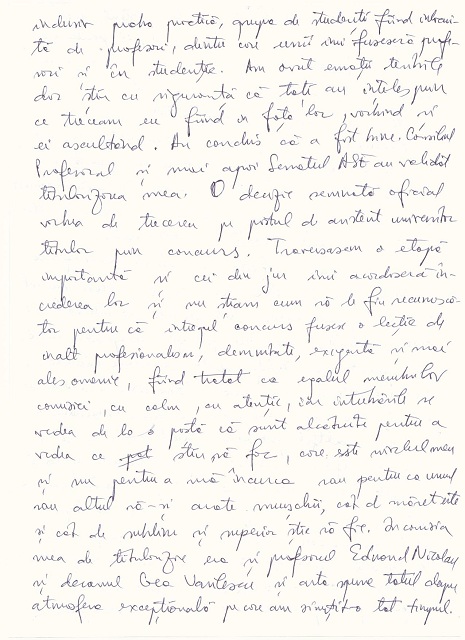 inclusiv proba practică, grupa de studenți fiind întregi-
tă de profesori, dintre care unii îmi fuseseră profe-
sori și în studenție. Am avut emoții teribile
dar știu cu siguranță că toți au înțeles prin
ce treceam eu fiind în fața lor, vorbind și
ei ascultând. Au conchis că a fost bine. Consiliul
Profesoral și mai apoi Senatul ASE au validat
titularizarea mea. O decizie semnată oficial
vorbea de trecerea pe postul de asistent universitar
titular prin concurs. Traversasem o etapă
importantă și cei din jur îmi acordaseră în-
crederea lor și nu știam cum să le fiu recunoscă-
tor pentru că întregul concurs fusese o lecție de
înalt profesionalism, demnitate, exigență și mai
ales omenie, fiind tratat ca egalul membrilor
comisiei, cu calm, cu atenție, iar întrebările se
vedea de la o poștă că sunt alcătuite pentru a
vedea ce pot știu să fac, care este nivelul meu
și nu pentru a mă încurca sau pentru ca unul
sau altul să-și arate mușchii, cât de măreț este
și cât de sublim și superior știe să fie. În comisia
mea de titularizare era și profesorul Edmond Nicolau
și decanul Gea Vasilescu și asta spune totul despre
atmosfera excepțională pe care am simțit-o tot timpul.